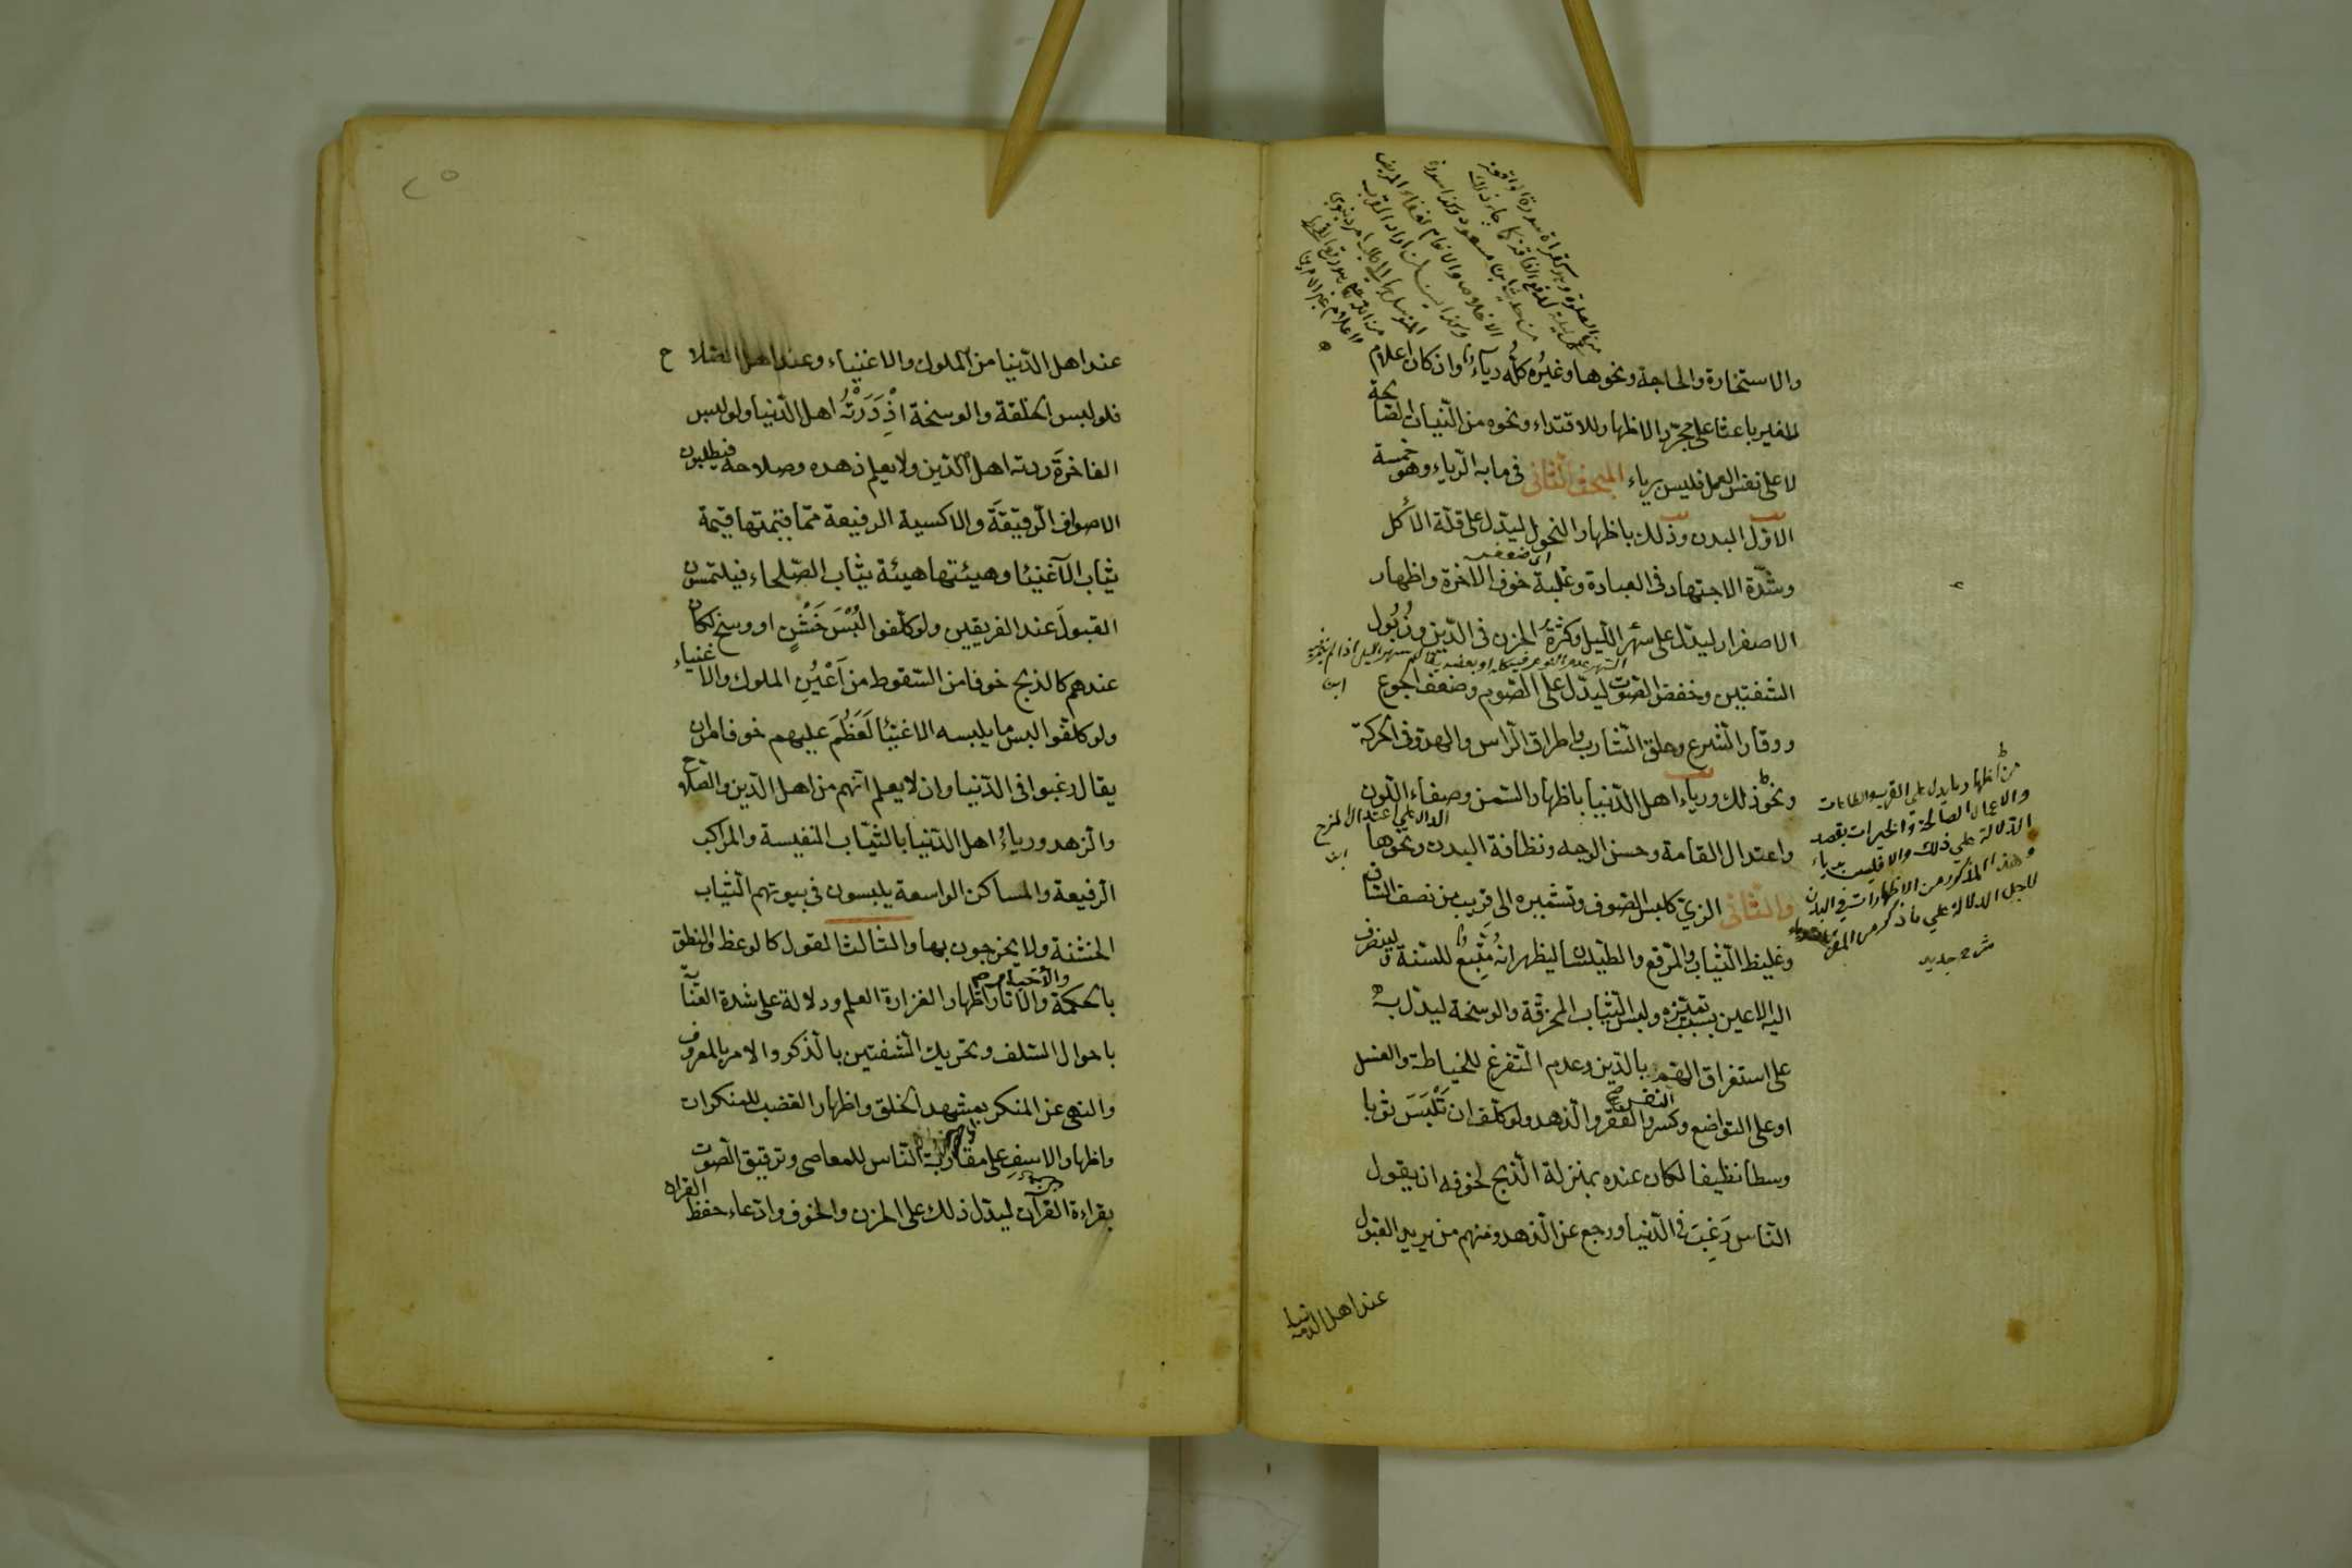 والاستخارة والحاجة ونحوها وغيره كله رياء وان كان اعلام
للغير باعثا على مجرد الاظهار للاقتداء ونحوه من النيات الصالحة
لا على نفس العمل فليس برياء المبحث الثانى فى ما به الرياء وهو خمسة
الاول البدن وذلك باظهار النحول ليدل على قلة الاكل
وشدة الاجتهاد فى العبادة وغلبة خوف الاخرة واظهار
الاصفرار ليدل على سهر الليل وكثرة الحزن فى الدين وذُبُول
الشفتين وخفض الصوت ليدل على الصوم وضعف الجوع
ووقار الشرع وحلق الشارب واطراق الراس والهدو فى الحركة
ونحو ذلك ورياء اهل الدنيا باظهار السمن وصفاء اللون
واعتدال القامة وحسن الوجه ونظافة البدن ونحوها
والثانى الزي كلبس الصوف وتشميره الى قريب من نصف الساق
وغليظ الثياب والمرقع والطيلسان ليظهر انه مُتَّبِع للسنة ولينصرف
اليه الاعين بسبب تميزه ولبس الثياب المخرقة والوسخة ليدل به
على استغراق الهم بالدين وعدم التفرغ للخياطة والغسل
او على التواضع وكسر النفس والفقر والزهد ولو كلف ان تَلْبَسَ ثوبا
وسطا نظيفا لكان عنده بمنزلة الذبح لخوفه ان يقول
الناس رَغِبَ فى الدنيا ورجع عن الزهد ومنهم من يريد القبول
عند اهل الدنيا
من اظهار ما يدل على القرب والطاعات
والاعمال الصالحة والخيرات بقصد
الدلالة على ذلك والا فليس برياء
وهذا المذكور من الاظهارات فى البدن
لاجل الدلالة على ما ذكر من
عند اهل الدنيا من الملوك والاغنياء وعند اهل الصلاح
فلو لبس الخلقة والوسخة اذْدَرَتْهُ اهل الدنيا ولو لبس
الفاخرةَ ردته اهل الدين ولا يعلم زهده وصلاحه فيطلبون
الاصواف الرقيقةَ والاكسية الرفيعة مما قيمتها قيمة
ثياب الاغنيا وهيئتها هيئة ثياب الصلحاء فيلتمسون
القبولَ عند الفريقين ولو كلفوا لُبْسَ خَشْنٍ او وسخ لكان
عندهم كالذبح خوفا من السقوط من اَعْيُنِ الملوك والاغنياء
ولو كلفوا لبس ما يلبسه الاغنيا لَعَظُمَ عليهم خوفا من ان
يقال رغبوا فى الدنيا وان لا يعلم انهم من اهل الدين والصلاح
والزهد ورياءُ اهل الدنيا بالثياب النفيسة والمراكب
الرفيعة والمساكن الواسعة يلبسون فى بيوتهم الثياب
الخشنة ولا يخرجون بها والثالث القول كالوعظ والنطق
بالحكمة والاخبار والاثار اظهارا لغزارة العلم ودلالة على شدة العناية
باحوال السلف وتحريك الشفتين بالذكر والامر بالمعروف
والنهى عن المنكر بمشهد الخلق واظهار الغضب للمنكرات
واظهار الاسفِ على مقاربة الناس للمعاصى وترقيق الصوت
بقراءة القرآن ليدل ذلك على الحزن والخوف وادعاء حفظ القران